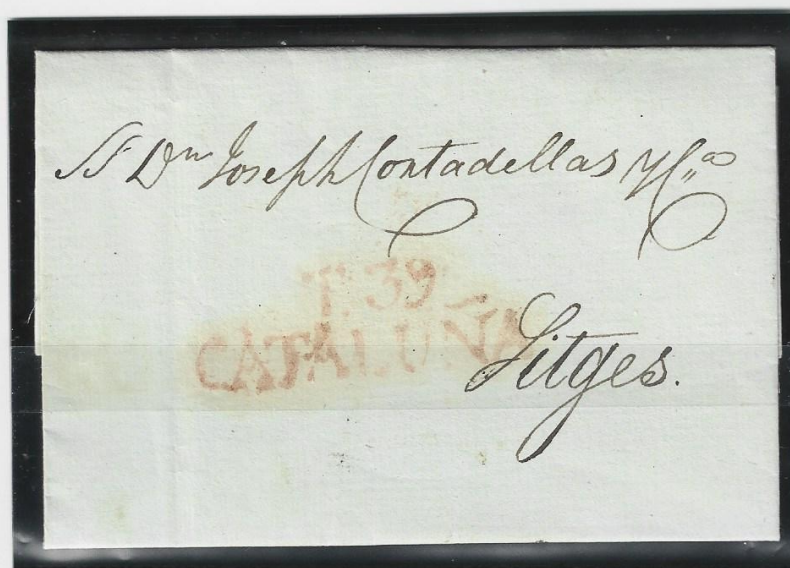 Sr Dn Joseph Contadellas y Ca
T. 39
CATALUÑA
Sitges.